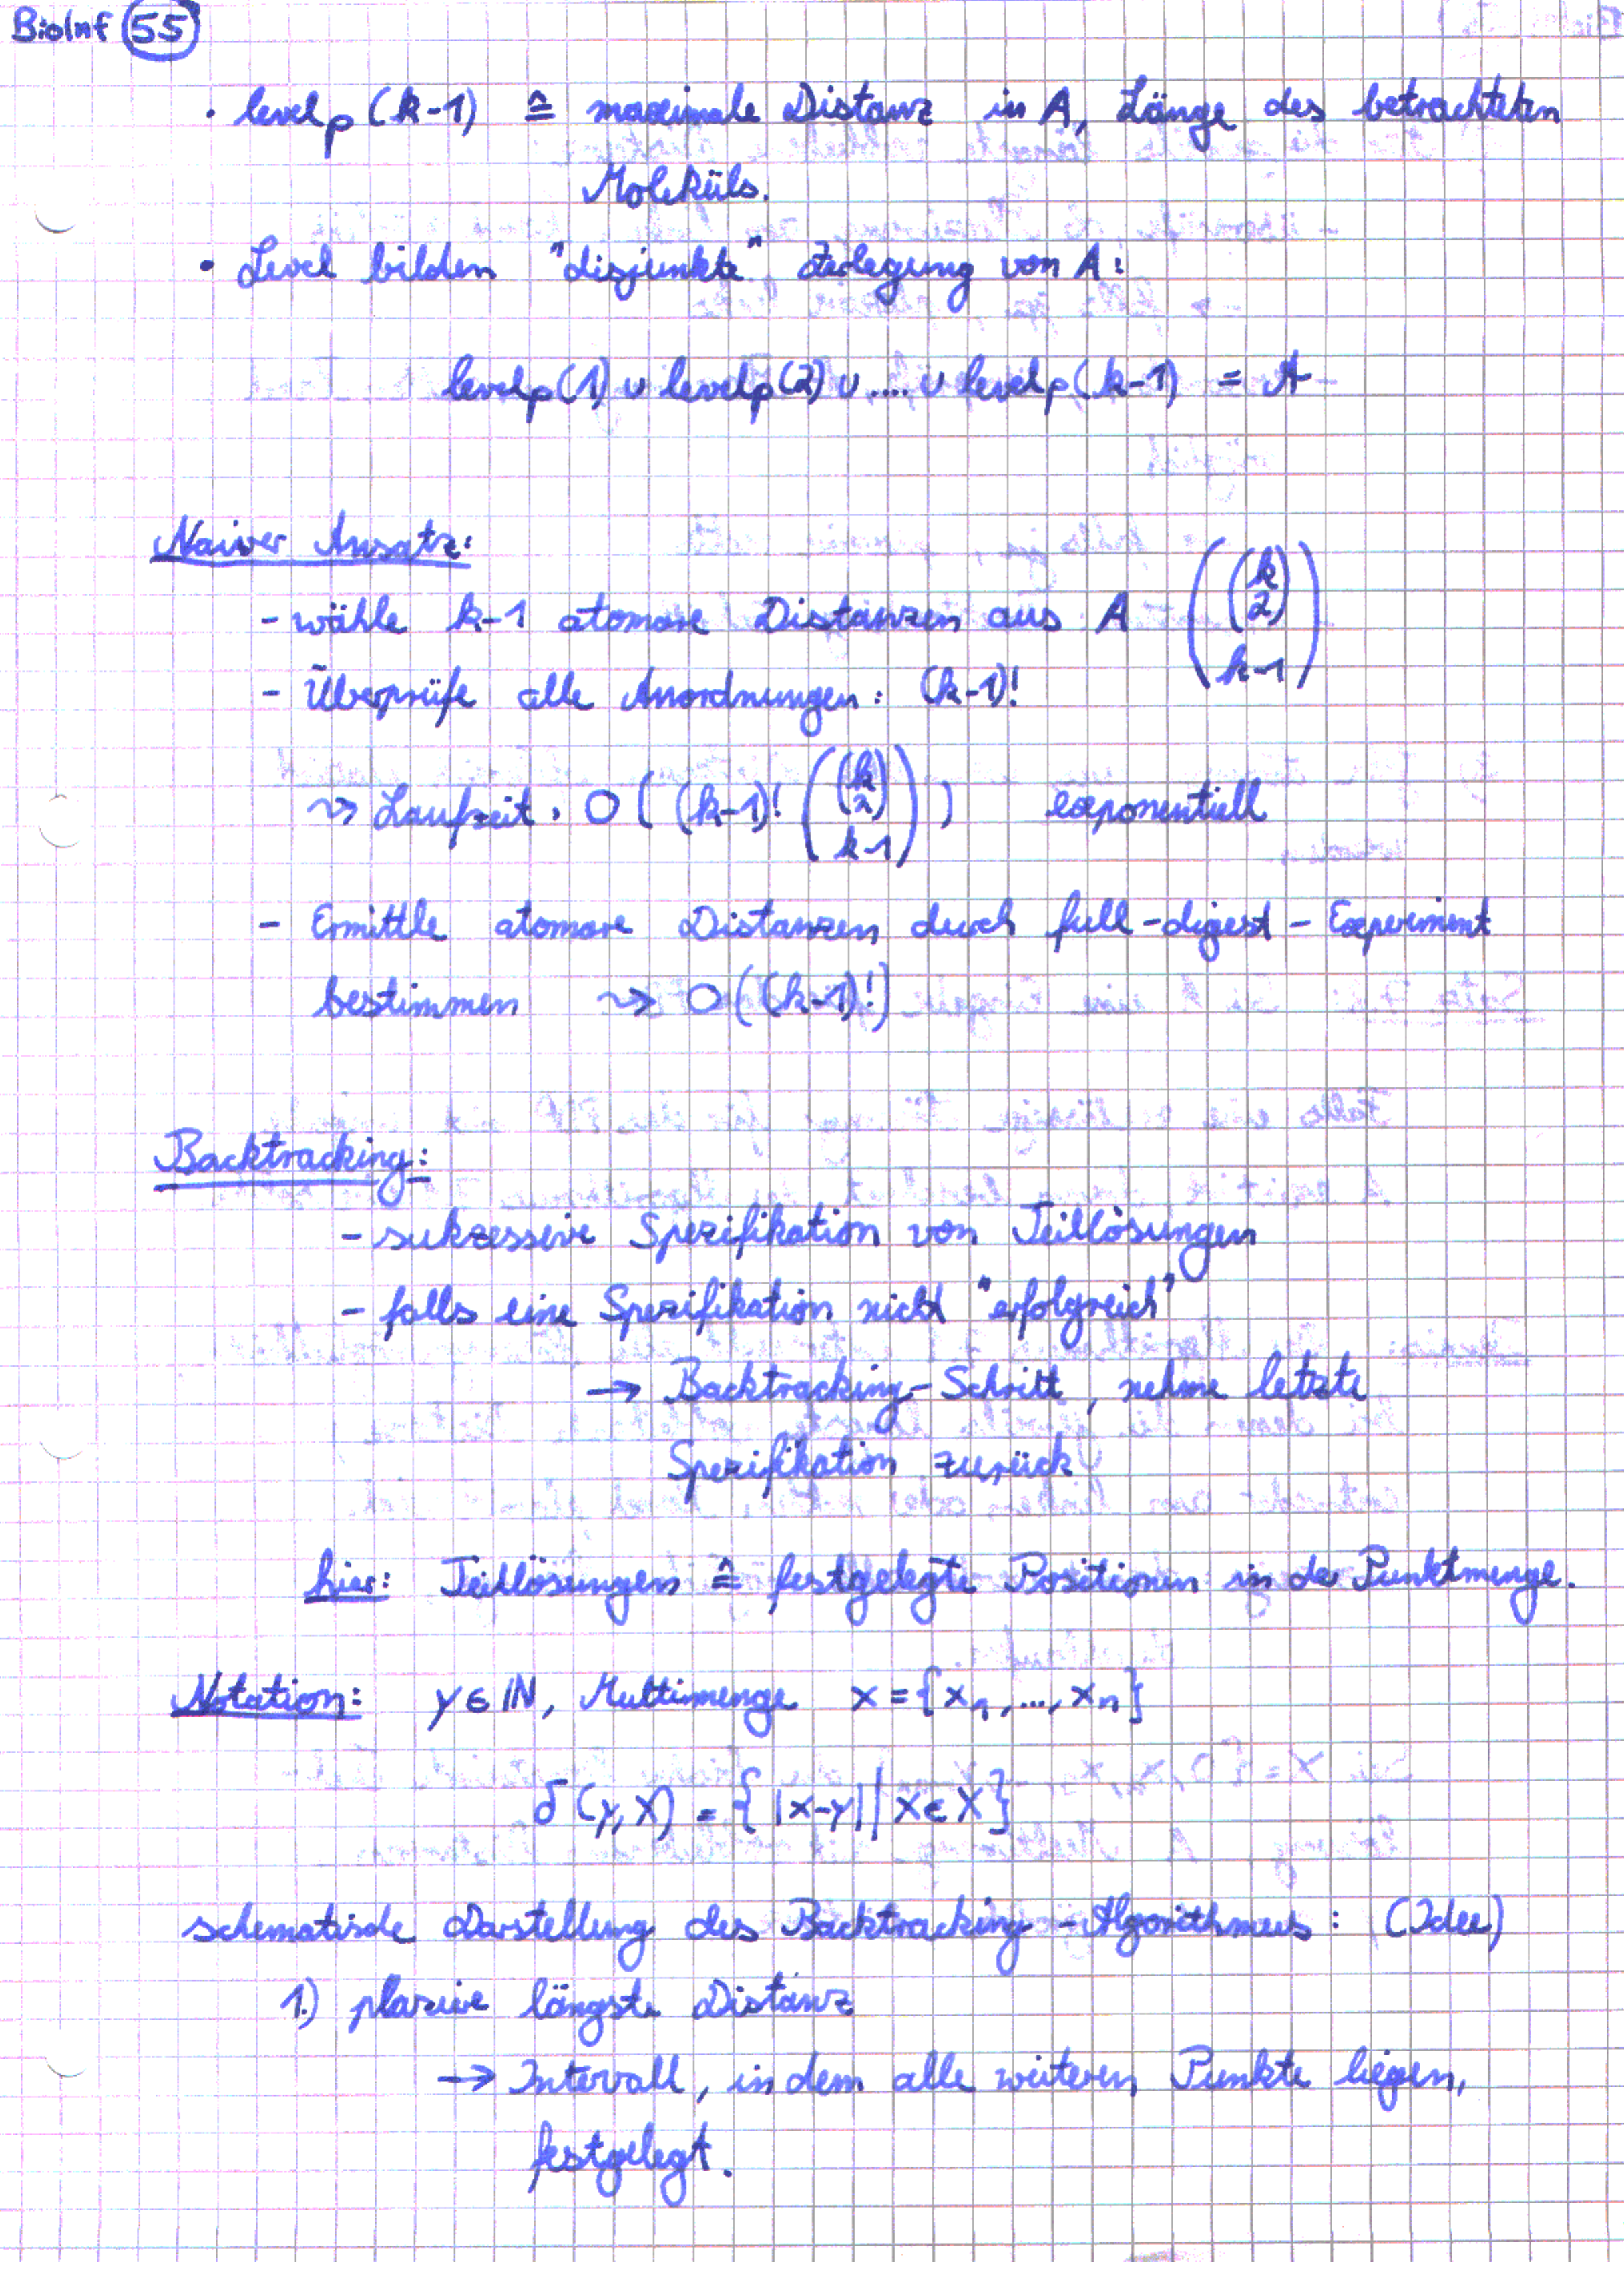 BioInf 55
• level_P(k-1) ≙ maximale Distanz in A, Länge des betrachteten
Moleküls.
• Level bilden "disjunkte" Zerlegung von A:
level_P(1) ∪ level_P(2) ∪ .... ∪ level_P(k-1) = A
Naiver Ansatz:
- wähle k-1 atomare Distanzen aus A ( (k 2) k-1 )
- Überprüfe alle Anordnungen: (k-1)!
⇝ Laufzeit: O( (k-1)! ( (k 2) k-1 ) ) exponentiell
- Ermittle atomare Distanzen durch full-digest-Experiment
bestimmen ⇝ O((k-1)!)
Backtracking:
- sukzessive Spezifikation von Teillösungen
- falls eine Spezifikation nicht "erfolgreich"
→ Backtracking-Schritt, nehme letzte
Spezifikation zurück
hier: Teillösungen ≙ festgelegte Positionen in der Punktmenge.
Notation: y ∈ ℕ, Multimenge X = {x₁, ..., xₙ}
δ(y, X) = { |x-y| | x ∈ X }
schematische Darstellung des Backtracking-Algorithmus: (Idee)
1.) plaziere längste Distanz
→ Intervall, in dem alle weiteren Punkte liegen,
festgelegt.